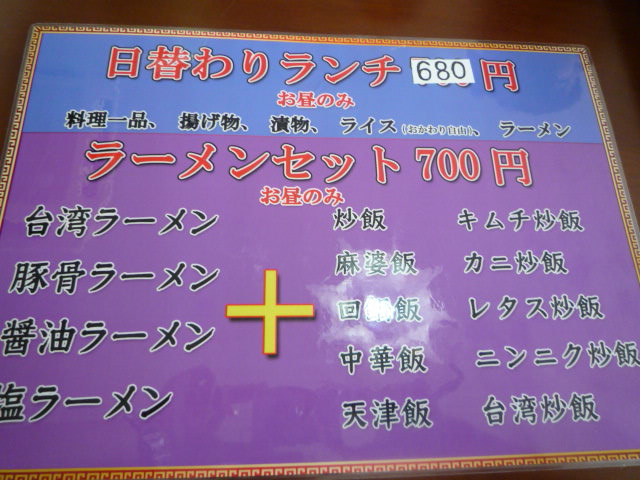 日替わりランチ 680円
お昼のみ
料理一品、 揚げ物、 漬物、 ライス(おかわり自由)、 ラーメン
ラーメンセット700円
お昼のみ
台湾ラーメン
豚骨ラーメン
醤油ラーメン
塩ラーメン
+
炒飯
麻婆飯
回鍋飯
中華飯
天津飯
キムチ炒飯
カニ炒飯
レタス炒飯
ニンニク炒飯
台湾炒飯